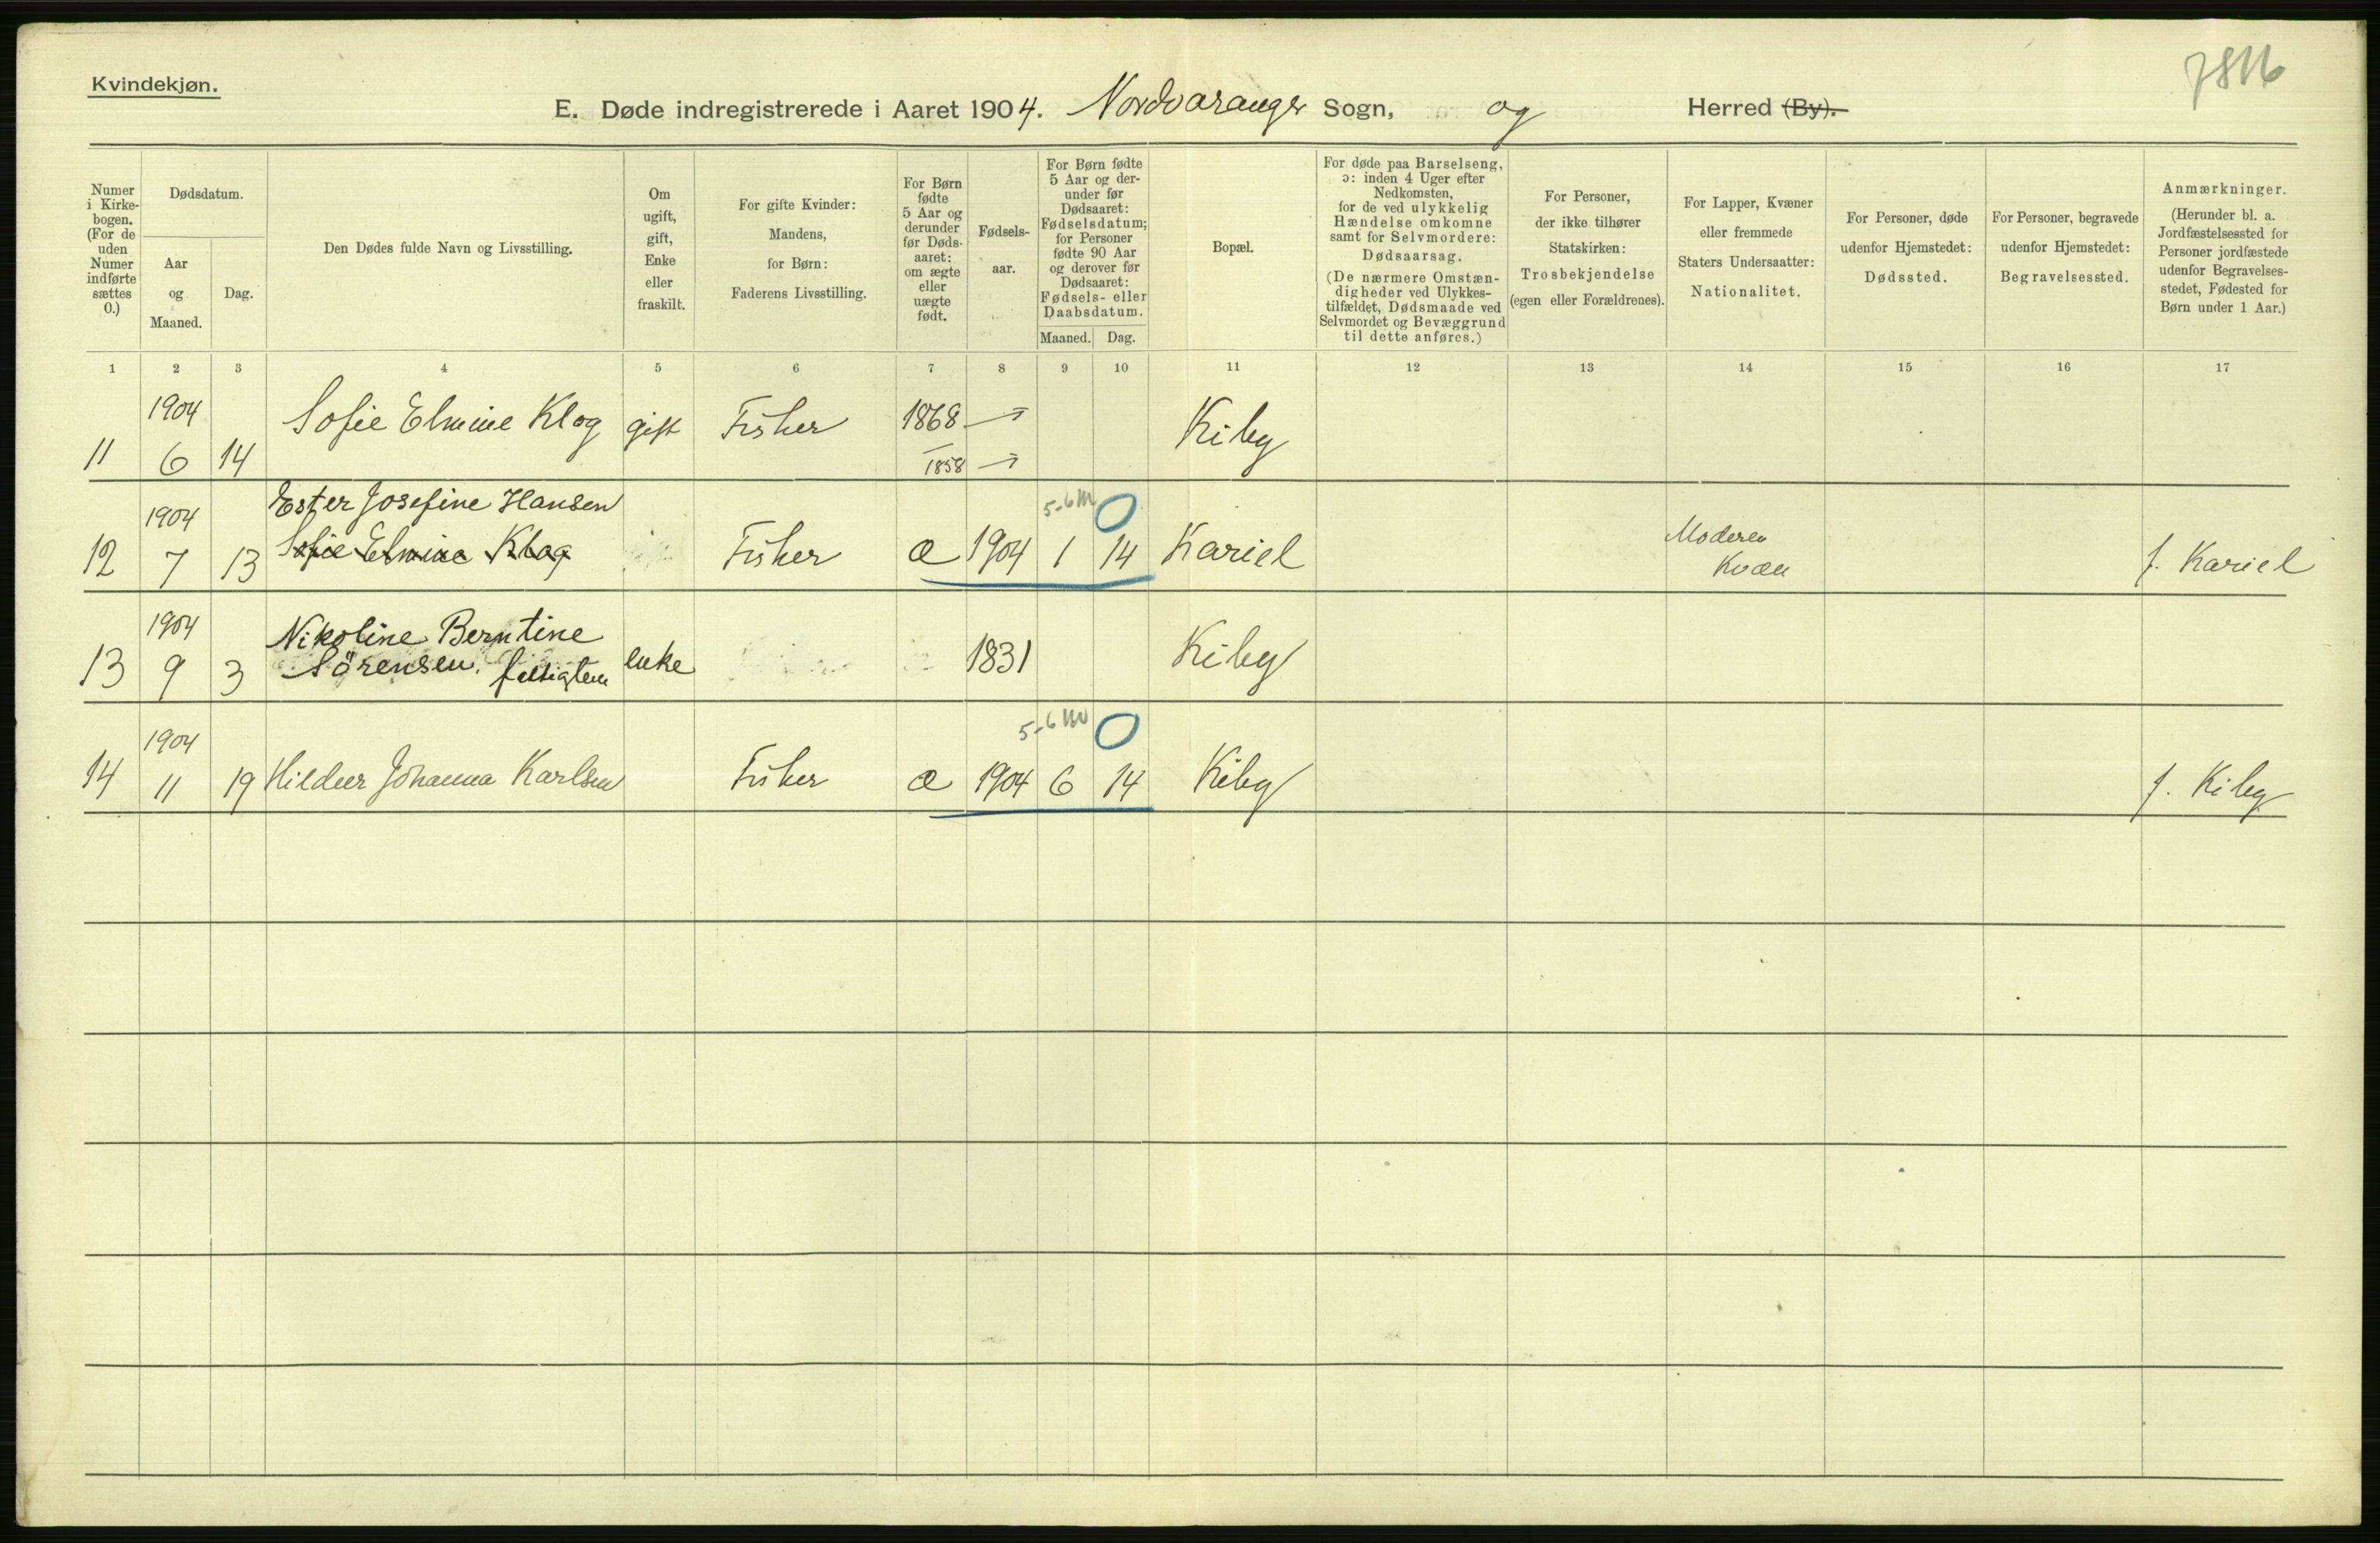 7816
Kvindekjøn.
E. Døde indregistrerede i Aaret 1904. Nordvaranger Sogn, og Herred (By).
Numer i Kirkebogen. (For de uden Numer indførte sættes 0.)
Dødsdatum.
Aar og Maaned.
Dag.
Den Dødes fulde Navn og Livsstilling.
Om ugift, gift, Enke eller fraskilt.
For gifte Kvinder: Mandens, for Børn: Faderens Livsstilling.
For Børn fødte 5 Aar og derunder før Dødsaaret: om ægte eller uægte født.
Fødselsaar.
For Børn fødte 5 Aar og derunder før Dødsaaret: Fødselsdatum; for Personer fødte 90 Aar og derover før Dødsaaret: Fødsels- eller Daabsdatum.
Maaned. Dag.
Bopæl.
For døde paa Barselseng, ɔ: inden 4 Uger efter Nedkomsten, for de ved ulykkelig Hændelse omkomne samt for Selvmordere: Dødsaarsag. (De nærmere Omstændigheder ved Ulykkestilfældet, Dødsmaade ved Selvmordet og Bevæggrund til dette anføres.)
For Personer, der ikke tilhører Statskirken: Trosbekjendelse (egen eller Forældrenes).
For Lapper, Kvæner eller fremmede Staters Undersaatter: Nationalitet.
For Personer, døde udenfor Hjemstedet: Dødssted.
For Personer, begravede udenfor Hjemstedet: Begravelsessted.
Anmærkninger. (Herunder bl. a. Jordfæstelsessted for Personer jordfæstede udenfor Begravelsesstedet, Fødested for Børn under 1 Aar.)
1 2 3 4 5 6 7 8 9 10 11 12 13 14 15 16 17
11 1904 6 14 Sofie Elmine Klog gift Fisker 1868 Kiby
1858
Ester Josefine Hansen 5-6 M 0
12 1904 7 13 Sofie Elmine Klog Fisker Æ 1904 1 14 Kariel Moderen Kvæn f. Kariel
13 1904 9 3 Nikoline Berntine
Sörensen. fattiglem enke 1831 Kiby
5-6 M 0
14 1904 11 19 Hildur Johanna Karlsen Fisker Æ 1904 6 14 Kiby f. Kiby